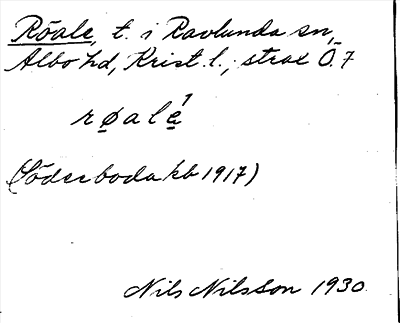 Röale, t. i Ravlunda sn,
Albo hd, Krist. l., strax Ö. 7
røalé
(Söderboda kb 1917)
Nils Nilsson 1930